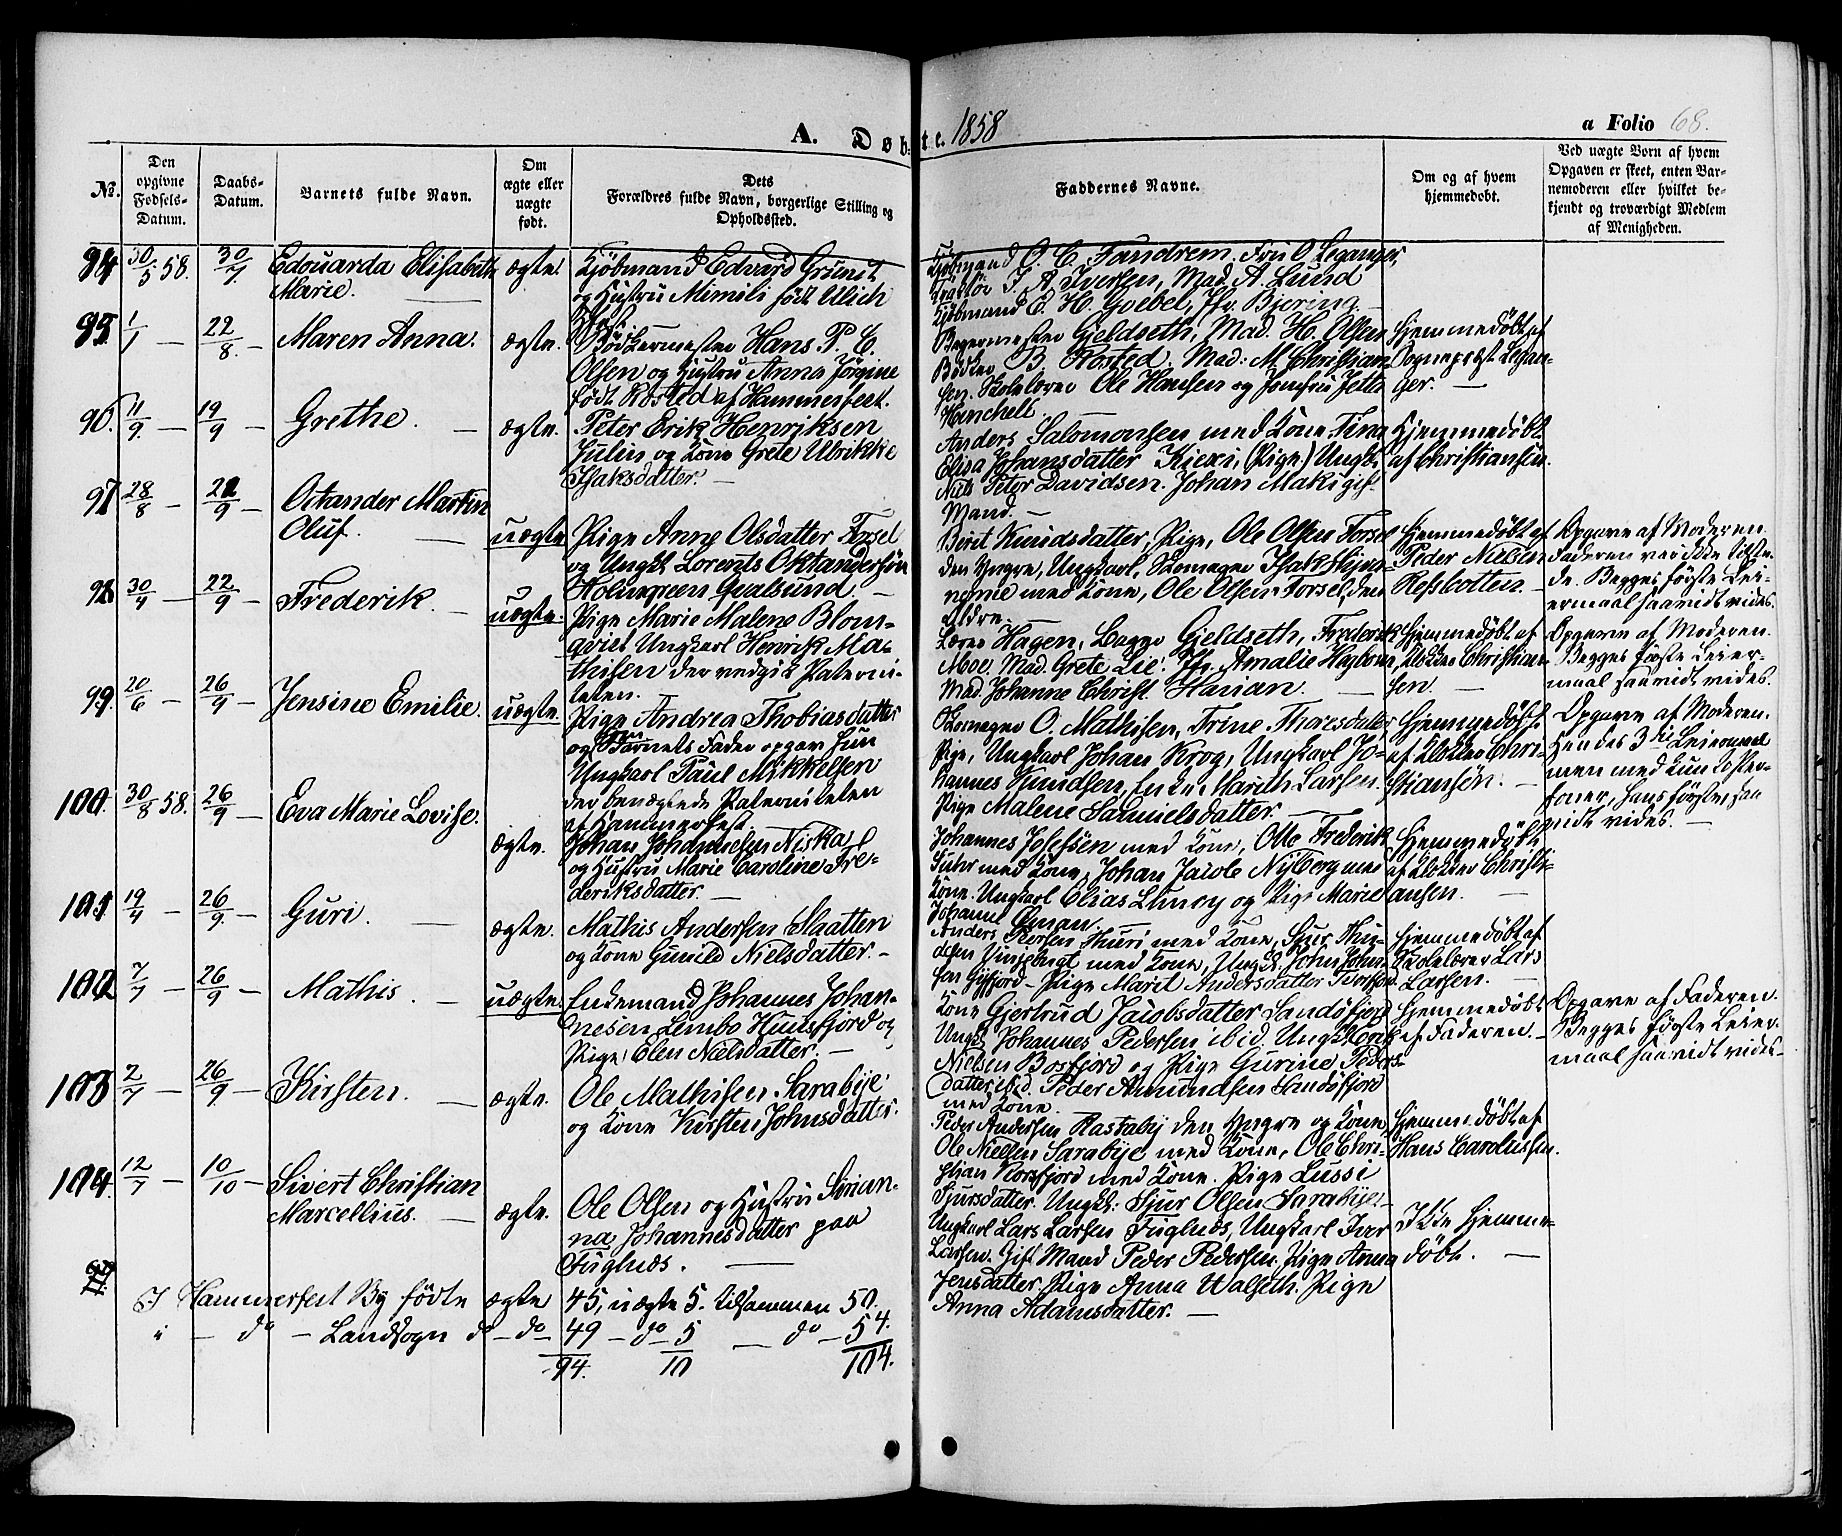 A. Døb-
te. 1858
a Folio 68.
No.
Den opgivne Fødsels-Datum.
Daabs-Datum.
Barnets fulde Navn.
Om ægte eller uægte født.
Dets Forældres fulde Navn, borgerlige Stilling og Opholdssted.
Faddernes Navne.
Om og af hvem hjemmedøbt.
Ved uægte Born af hvem Opgaven er skeet, enten Barnemoderen eller hvilket bekjendt og troværdigt Medlem af Menigheden.
94 30/5 58. 30/7. Edouarda Elisabeth ægte.
Marie.
Kjøbmand Edvard Grunit
og Hustru Mimili født Ulich
Kjøbmand O. C. Fandrem, Fru O Leganger,
I. A. Iversen, Mad. A. Lund
Kjøbmand C. H. Goebel, Jfr. Bjering
95. 1/1 — 22/8. — Maren Anna. ægte.
Bødkermester Hans P. C.
Olsen og Hustru Anna Jørgine
født Rosted af Hammerfest.
Bagermester Gjeldseth, Mad. H. Olsen
Bødker B. Rosted. Mad: M. Christian-
sen. Skolelærer Ole Hansen og Jomfru Jetta
Henchell.
Hjemmedøbt af
Sognepræst Legan-
ger. —
96. 11/9. — 19/9 — Grethe. — ægte.
Peter Erik Henriksen
Julin og Kone Grete Ulrikke
Isaksdatter. —
Anders Salomonsen med Kone Tina
Elisa Johansdatter Kiexi, (Pige) Ungk.
Niels Peter Davidsen. Johan Maki gift
Mand. —
Hjemmedøbt
af Christiansen.
97. 28/8 — 22/9 — Octander Martin
Oluf. — uægte
Pige Anne Olsdatter Forsel
og Ungk. Lorents Oktandersøn
Holmgreen Qvalsund. —
Berit Knudsdatter, Pige, Ole Olsen Forsel
den Yngre, Ungkarl, Skomager Isak
med Kone, Ole Olsen Forsel, den
Ældre. —
Hjemmedøbt af
Peder Nielsen
Refsbotten. —
Opgave af Moderen.
Faderen var ikke tilste-
de. Begges første Lei-
ermaal saavidt vides.
98. 30/4 — 22/9 — Frederik. — uægte.
Pige Marie Malene Blom-
qvist Ungkarl Henrik Ma-
thisen der vedgik Paterni-
teten.
Lærer Hagen, Bager Gjeldseth, Frederik
Moe. Mad. Grete Lie. Jfr. Amalie Hagbom,
Mad. Johanne Christ. Harian. —
Hjemmedøbt af
Klokker Christian-
sen. —
Opgave af Moderen.
Begges første Leier-
maal saavidt vides.
99. 20/6 — 26/9 — Jensine Emilie. uægte.
Pige Andrea Thobiasdatter
og Barnets Fader opgav hun
Ungkarl Paul Mikkelsen
der benægtede Paterniteten
af Hammerfest.
Skomager O. Mathisen, Trine Tharesdatter,
Pige, Ungkarl Johan Krog, Ungkarl Jo-
hannes Knudsen, Enke Marith Larsen.
Pige Malene Samuelsdatter. —
Hjemmedøbt
af Klokker Chri-
stiansen. —
Opgave af Moderen.
Hendes 3die Leiermaal
men med
hans første, saa-
vidt vides. —
100. 30/8 58. 26/9 — Eva Marie Lovise. ægte.
Johan Johannesen Niska
og Hustru Marie Caroline Fre-
deriksdatter. —
Johannes Josefsen med Kone, Otto Frederik
Suhr med Kone, Johan Jacob Nyberg med
Kone. Ungkarl Elias Limoy og Pige Marie
Johanne Öman.
Hjemmedøbt
af Klokker Christi-
ansen. —
101 19/4 — 26/9. — Guri. — ægte.
Mathis Andersen Slaatten
og Kone Gunild Nielsdatter. —
Anders Thuri med Kone, Sjur Thu-
med Kone, Ungk. John John-
sen Pige Marit Andersdatter
Hjemmedøbt af
Skolelærer Lars
Larsen. —
102 7/7 — 26/9 — Mathis. — uægte.
Enkemand Johannes Johan-
nesen Lembo Hunsfjord og
Pige Elen Nielsdatter. —
Kone Gjertrud Jacobsdatter Sandøfjord
Ungk. Johannes Pedersen ibid. Ungk.
Nielsen Bosfjord og Pige Gurine Peders-
datter ibid. Peder Amundsen Sandøfjord
med Kone.
Hjemmedøbt
af Faderen. —
Opgave af Faderen.
Begges første Leier-
maal saavidt vides. —
103 2/7 — 26/9 — Kirsten. — ægte.
Ole Mathisen Sarabye
og Kone Kirsten Johnsdatter.
Peder Andersen Rastaby den Yngre og Kone,
Ole Nielsen Sarabye med Kone, Ole Chri-
stian Korsfjord med Kone. Pige Lussi
Sjursdatter. Ungk: Sjur Olsen Sarabye. —
Hjemmedøbt af
Hans Carolussen.
104. 12/7 — 10/10 — Sivert Christian
Marcellius. — ægte.
Ole Olsen og Hustru Sirian-
na Johannesdatter paa
Fuglnæs. —
Ungkarl Lars Larsen Fuglnæs, Ungkarl Iver
Larsen. Gift Mand Peder Pedersen. Pige Anna
Jensdatter. Pige Anna Walseth. Pige
Anna Adamsdatter. —
Ikke hjemme-
døbt. —
I Hammerfest By fødte ægte 45, uægte 5. tilsammen 50.
i — do — Landsogn do — do 49 — do 5 — do — 54.
94. 10 104.